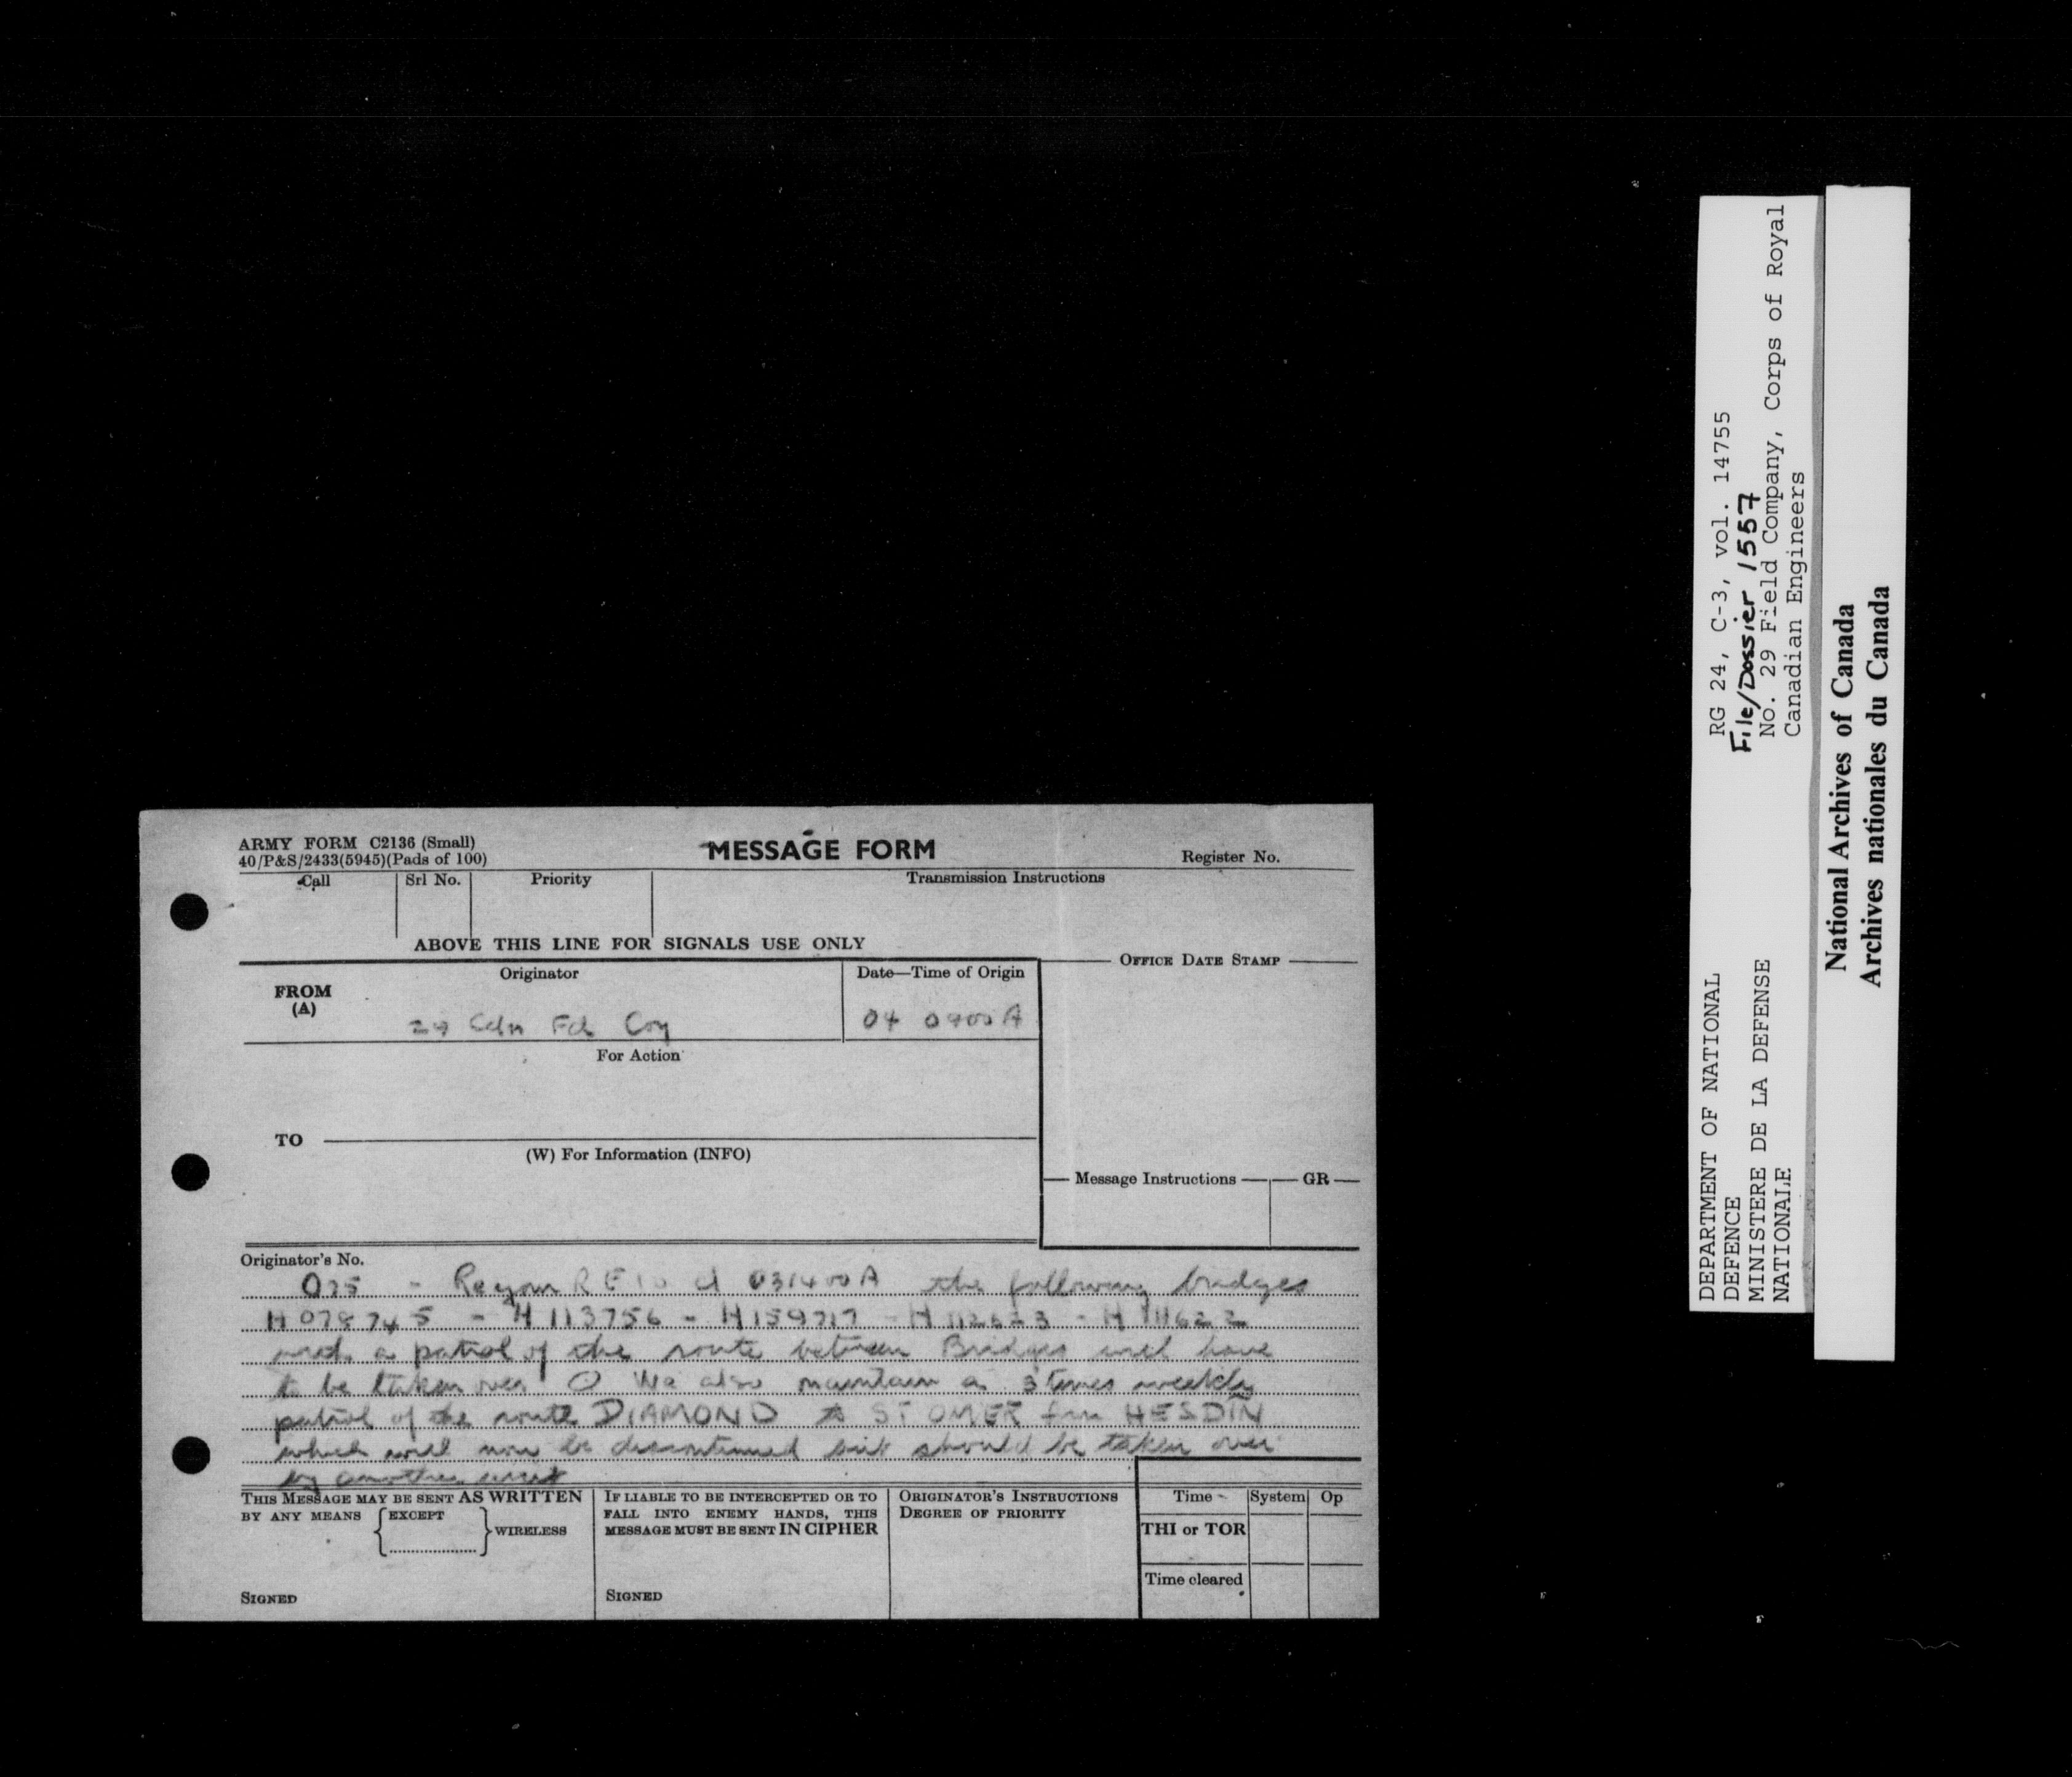 ARMY FORM C2136 (Small)
40/P&S/2433(5945)(Pads of 100)
MESSAGE FORM
Register No.
Call
Srl No.
Priority
Transmission Instructions
ABOVE THIS LINE FOR SIGNALS USE ONLY
FROM
(A)
Originator
29 Cdn Fd Coy
Date—Time of Origin
04 0900 A
OFFICE DATE STAMP
For Action
TO
(W) For Information (INFO)
Message Instructions
GR
Originator's No.
O25 - 031400A the following bridges
H 078745 - H 113756 - H 159717 - H 112623 - H 111622
and a patrol of the route between Bridges will have
to be taken over O We also maintain a 3 times weekly
patrol of the route DIAMOND to ST OMER HESDIN
which will now be discontinued but should be taken over
by another unit
THIS MESSAGE MAY BE SENT AS WRITTEN
BY ANY MEANS
EXCEPT
WIRELESS
SIGNED
IF LIABLE TO BE INTERCEPTED OR TO
FALL INTO ENEMY HANDS, THIS
MESSAGE MUST BE SENT IN CIPHER
SIGNED
ORIGINATOR'S INSTRUCTIONS
DEGREE OF PRIORITY
Time
System
Op
THI or TOR
Time cleared
DEPARTMENT OF NATIONAL
DEFENCE
MINISTERE DE LA DEFENSE
NATIONALE
RG 24, C-3, vol. 14755
File/Dossier 1557
No. 29 Field Company, Corps of Royal
Canadian Engineers
National Archives of Canada
Archives nationales du Canada